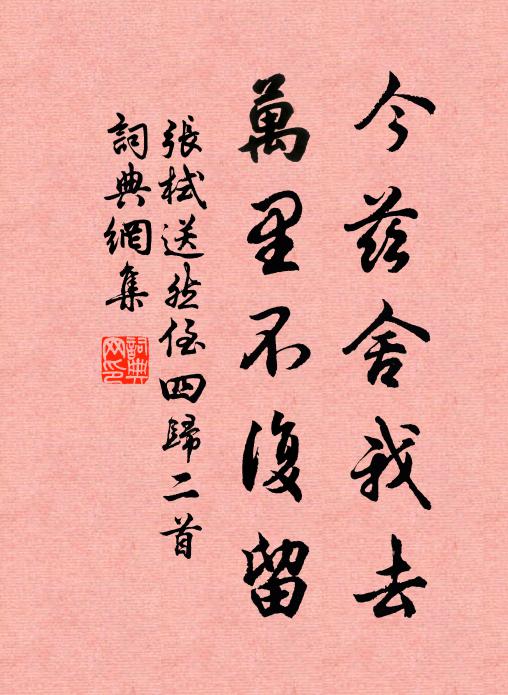 今茲舍我去
萬里不復留
張栻送然姪四歸二首
詞典網集
詞典網印